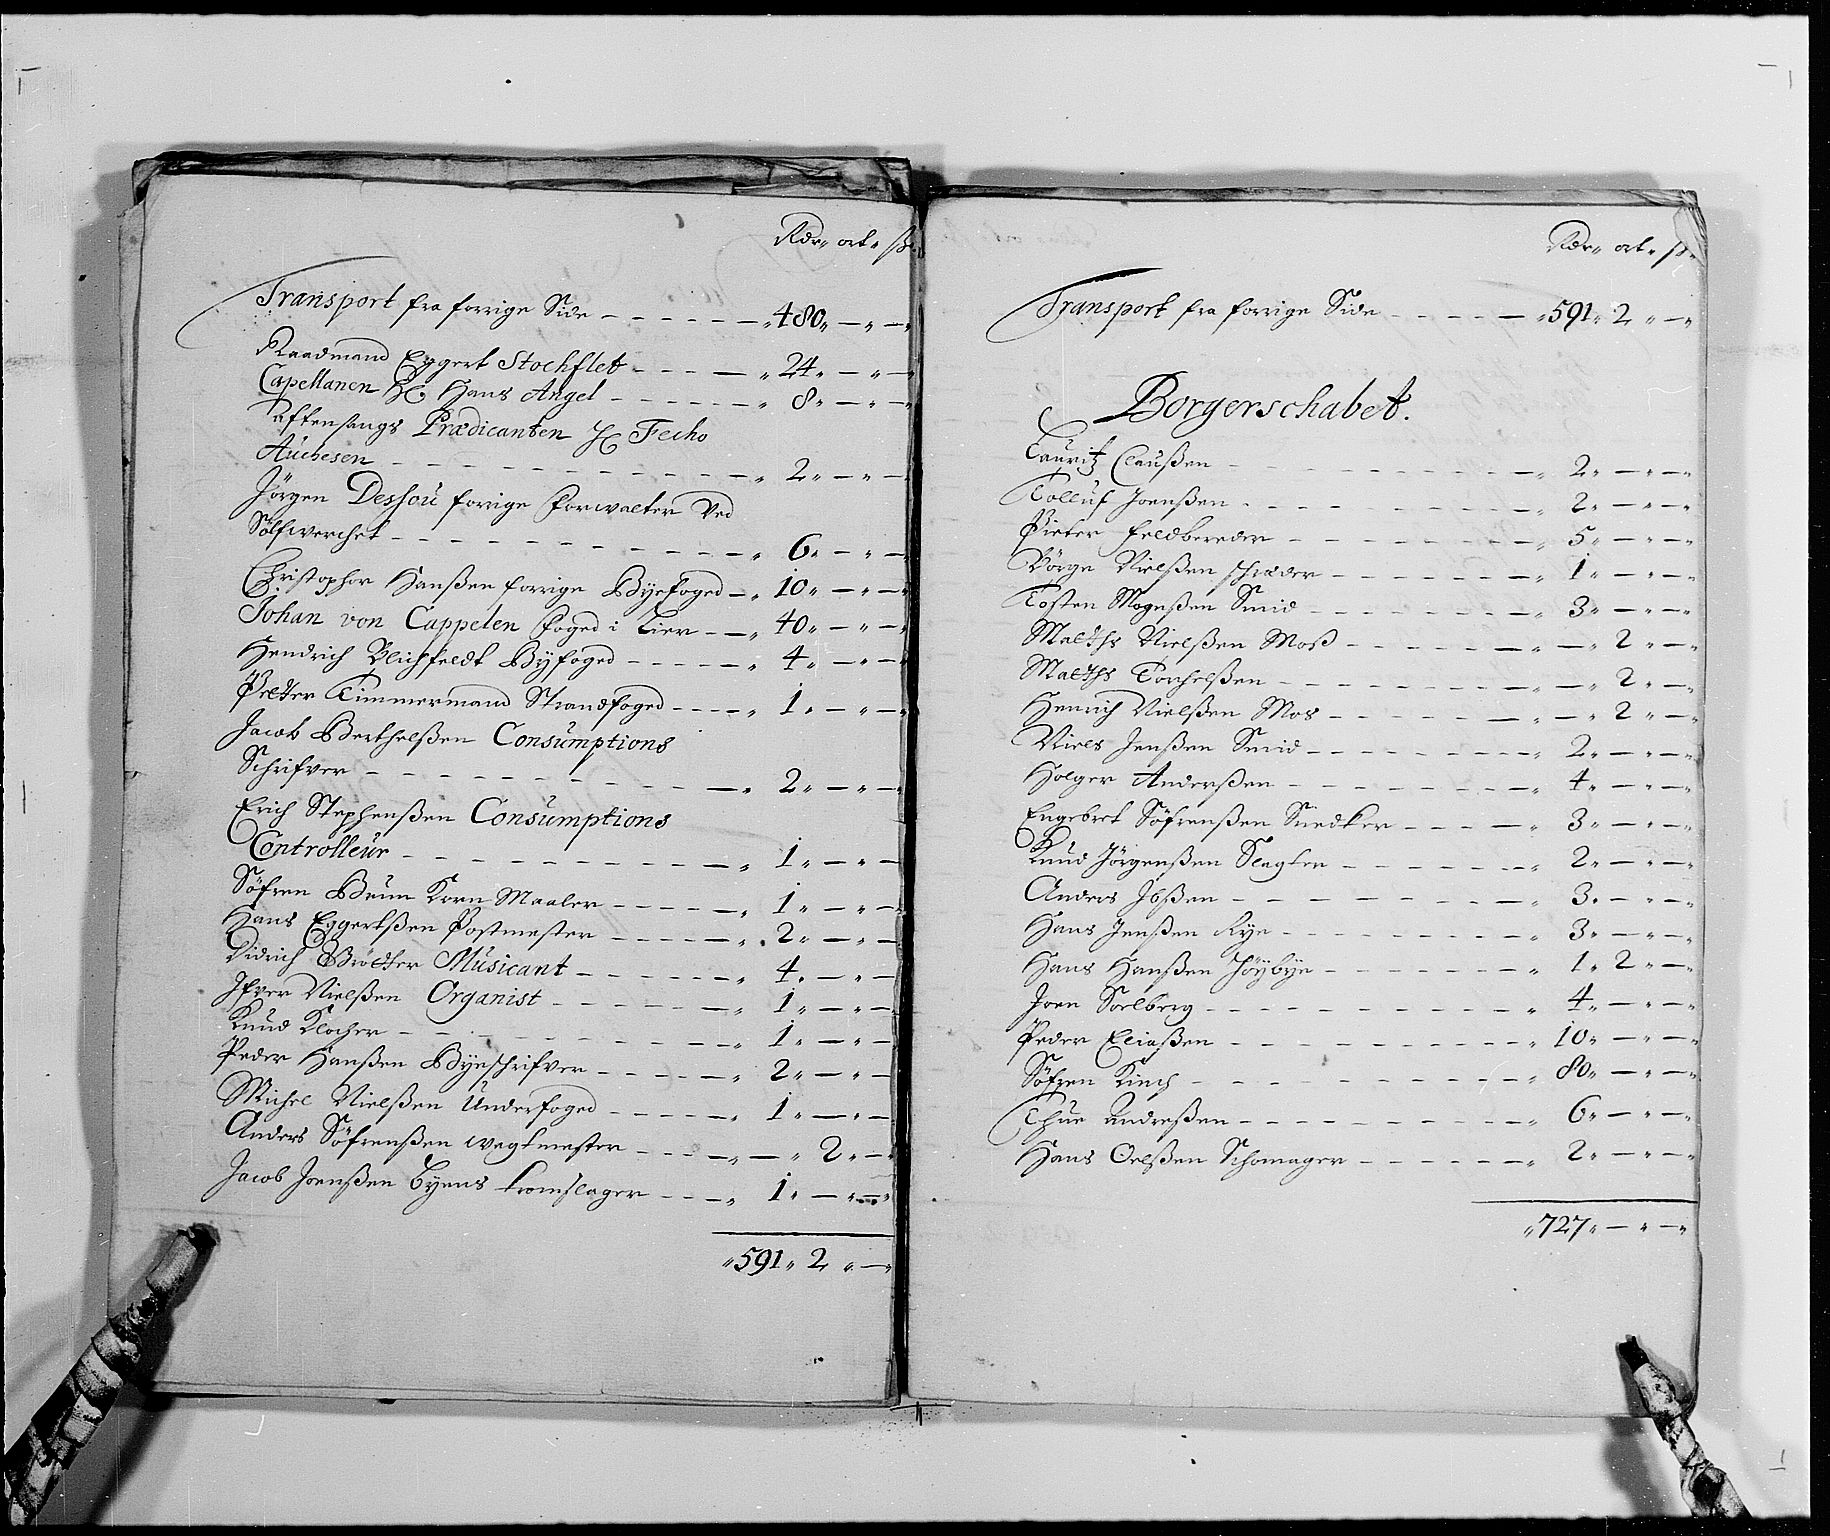 Rdr. ort. ß.
Transport fra forrige Side - - - - - - 480. — . —
Raadmand Eggert Stochflet - - - - 24. — . —
Capellanen Hr. Hans Angel - - - - - 8. — . —
Aftensangs Prædicanten Hr Fecho
- - - - - - - - - - 2. — . —
Jörgen Dessou forrige forwalter Ved
Sölfwerchet - - - - - - - - - - 6. — . —
Christopher Hanßen forrige Byefoged - 10. — . —
Johan von Cappelen foged i Lier - - 40. — . —
Hendrich Blichfeldt Byfoged - - - - - 4. — . —
Petter Timmermand Strandfoged - - - - 1. — . —
Jacob Berthelßen Consumptions
Schrifver - - - - - - - - - - 2. — . —
Erich Stephenßen Consumptions
Controlleur - - - - - - - - - 1. — . —
Söfren Brun Korn Maaler - - - - - 1. — . —
Hans Eggertßen Postmester - - - - - 2. — . —
Didrich Brödker Musicant - - - - - 4. — . —
Ifver Nielßen Organist - - - - - - 1. — . —
Knud Klocher - - - - - - - - - 1. — . —
Peder Hanßen Byeschrifver - - - - - 2. — . —
Michel Nielßen Underfoged - - - - - 1. — . —
Anders Söfrenßen wegtmester - - - - — . 2. —
Jacob Joenßen Byens tromslager - - - 1. — . —
591. 2. —
Rdr. ort. ß.
Transport fra forrige Side - - - - - 591. 2. —
Borgerschabet.
Lauritz Claußen - - - - - - - - 2. — . —
Tolluf Joenßen - - - - - - - - 2. — . —
Pieter feldbereder - - - - - - - 5. — . —
Börge Nielßen schræder - - - - - - 1. — . —
Tosten Mognßen Smid - - - - - - - 3. — . —
Malths Nielßen Moß - - - - - - — . 2. —
Malths Torchelßen - - - - - - - — . 2. —
Henrich Nielßen Mos - - - - - - — . 2. —
Niels Jenßen Smid - - - - - - - 2. — . —
Holger Anderßen - - - - - - - - 4. — . —
Engebret Söfrenßen Snedker - - - - 3. — . —
Knud Jörgenßen Slagter - - - - - - 2. — . —
Anders Ibßen - - - - - - - - - 3. — . —
Hans Jenßen Rye - - - - - - - - 3. — . —
Hans Hanßen Höybye - - - - - - - 1. 2. —
Joen Soelberg - - - - - - - - - 4. — . —
Peder Eliaßen - - - - - - - - - 10. — . —
Söfren Kinch - - - - - - - - - 80. — . —
Thue Andreßen - - - - - - - - - 6. — . —
Hans Oelßen Schomager - - - - - - 2. — . —
727. — . —